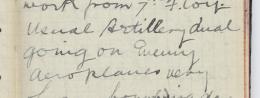 work from 7th F. Coy
Usual Artillery dual
going on Evening
Aeroplanes very